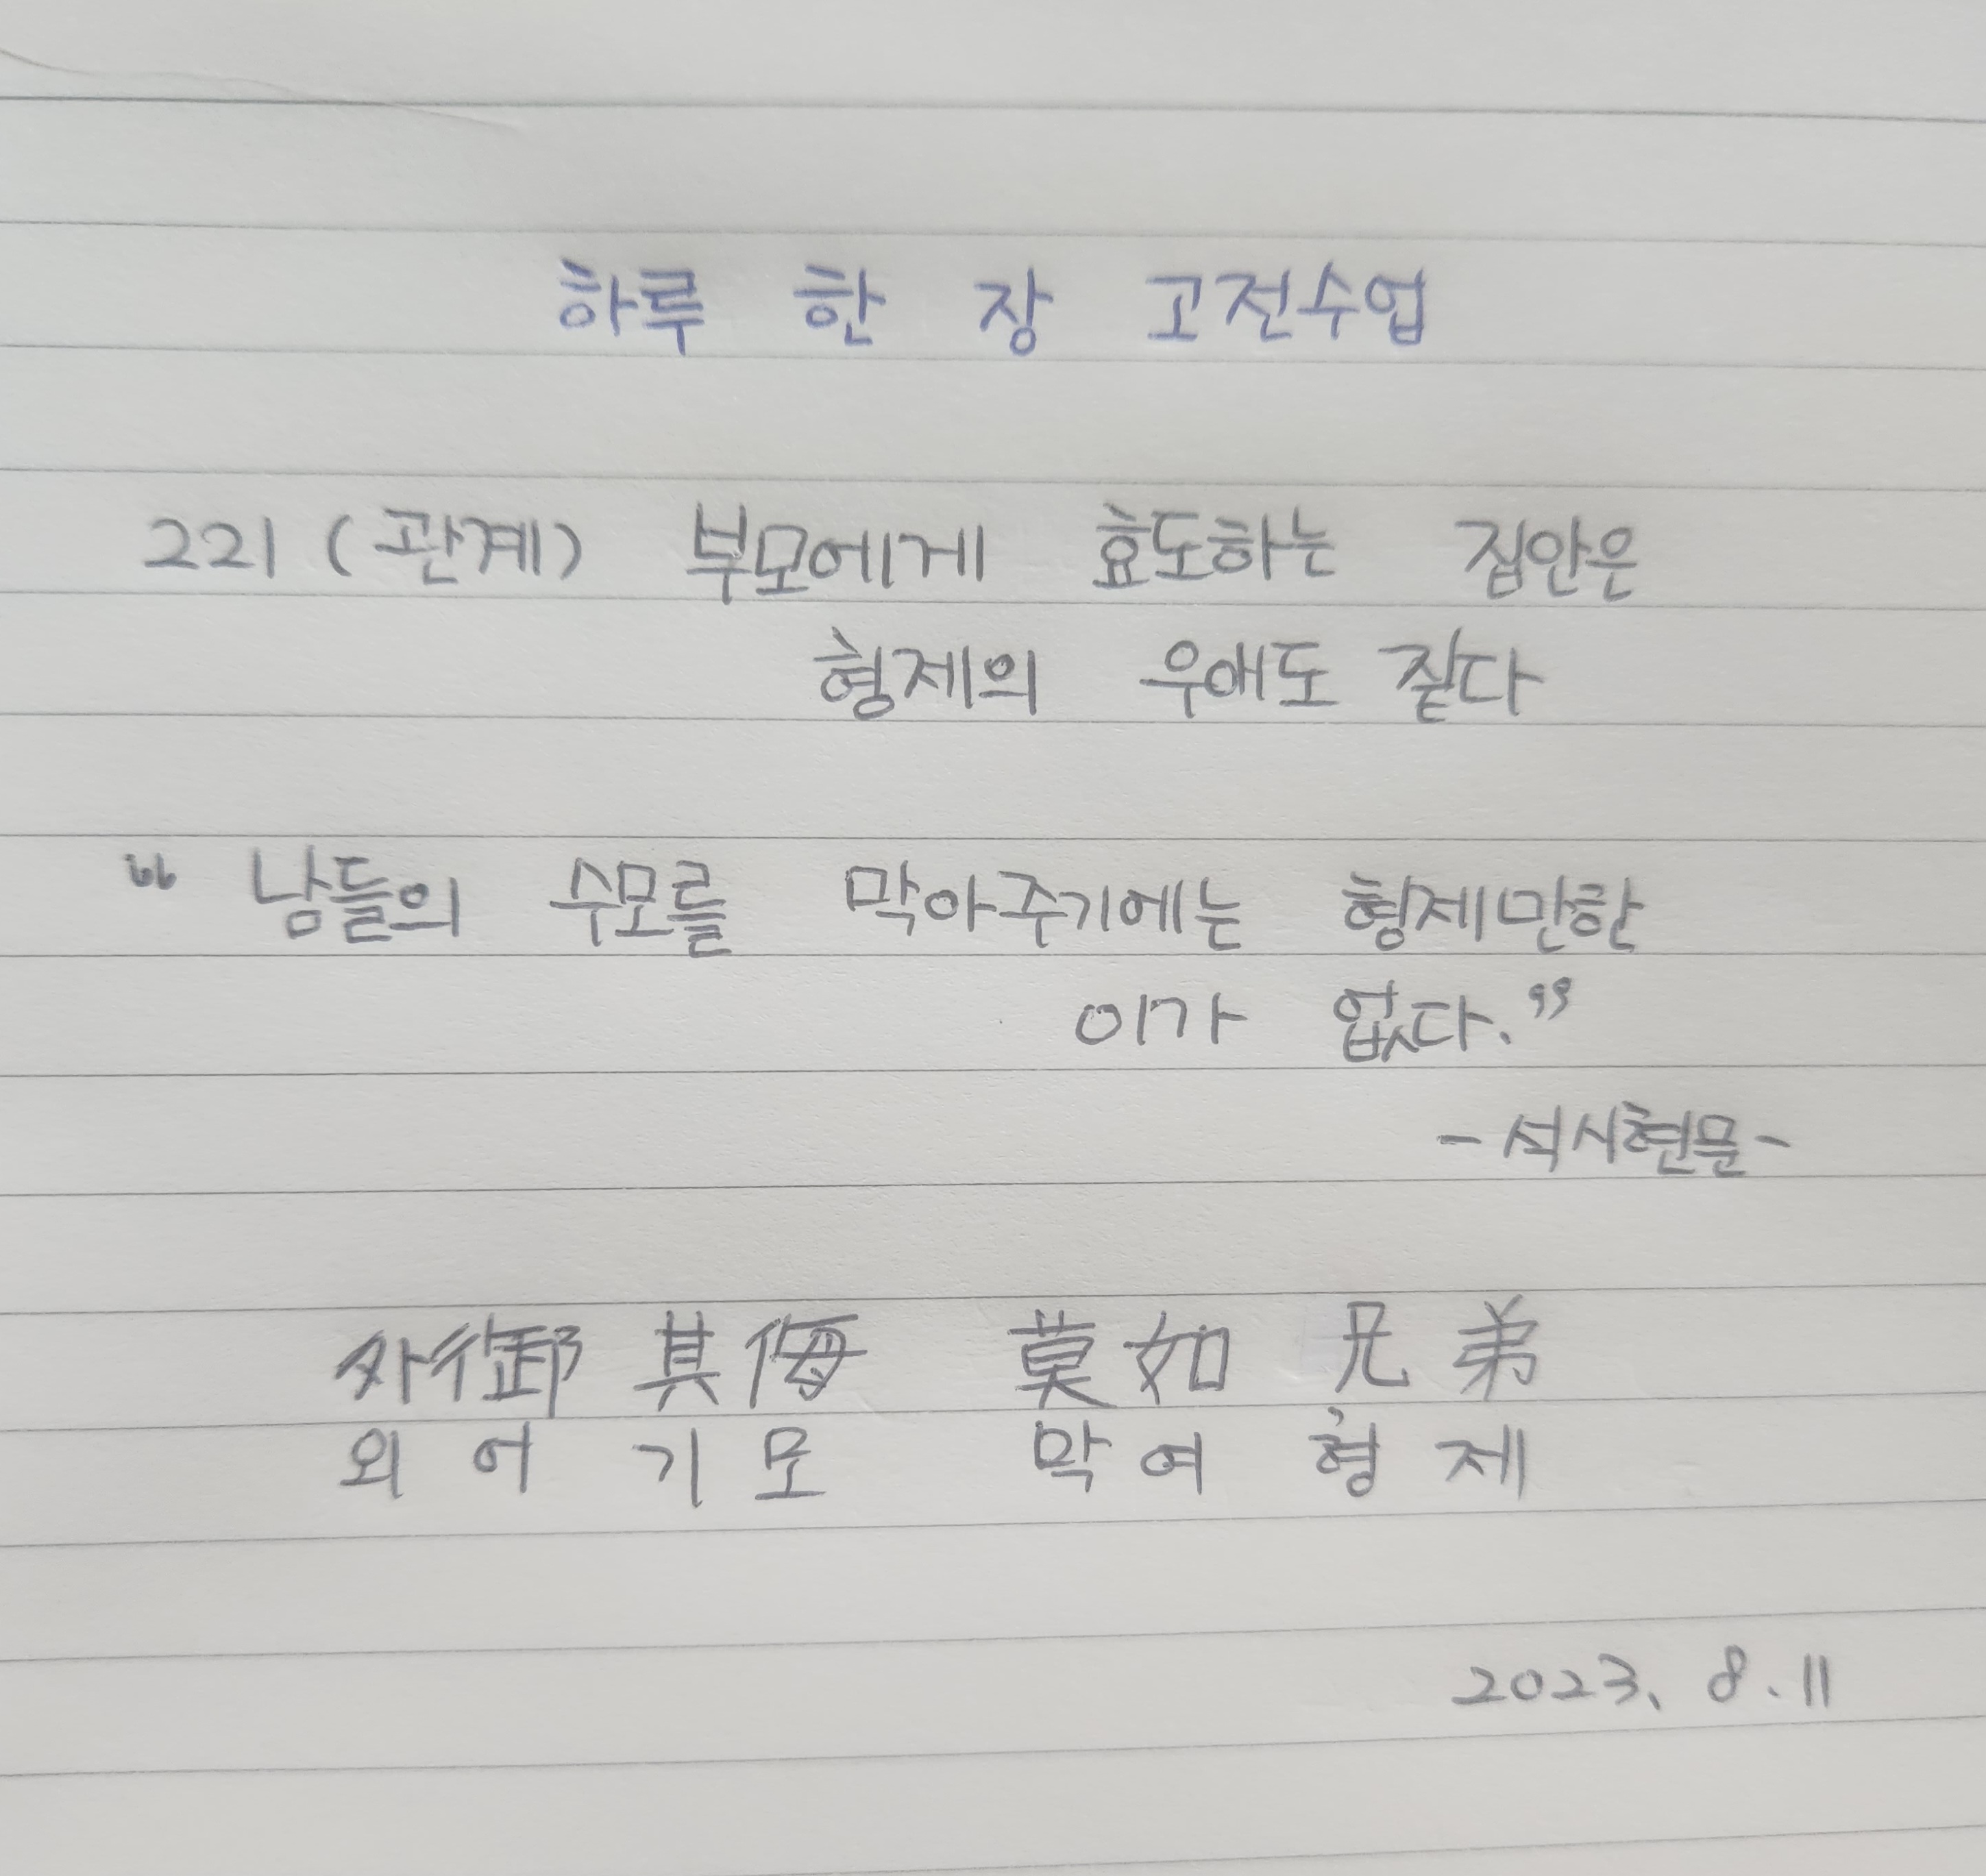 하루 한 장 고전수업
221 (관계) 부모에게 효도하는 집안은
형제의 우애도 짙다
“ 남들의 수모를 막아주기에는 형제만한
이가 없다.”
- 석시현문 -
外御其侮 莫如兄弟
외 어 기 모 막 여 형 제
2023. 8. 11